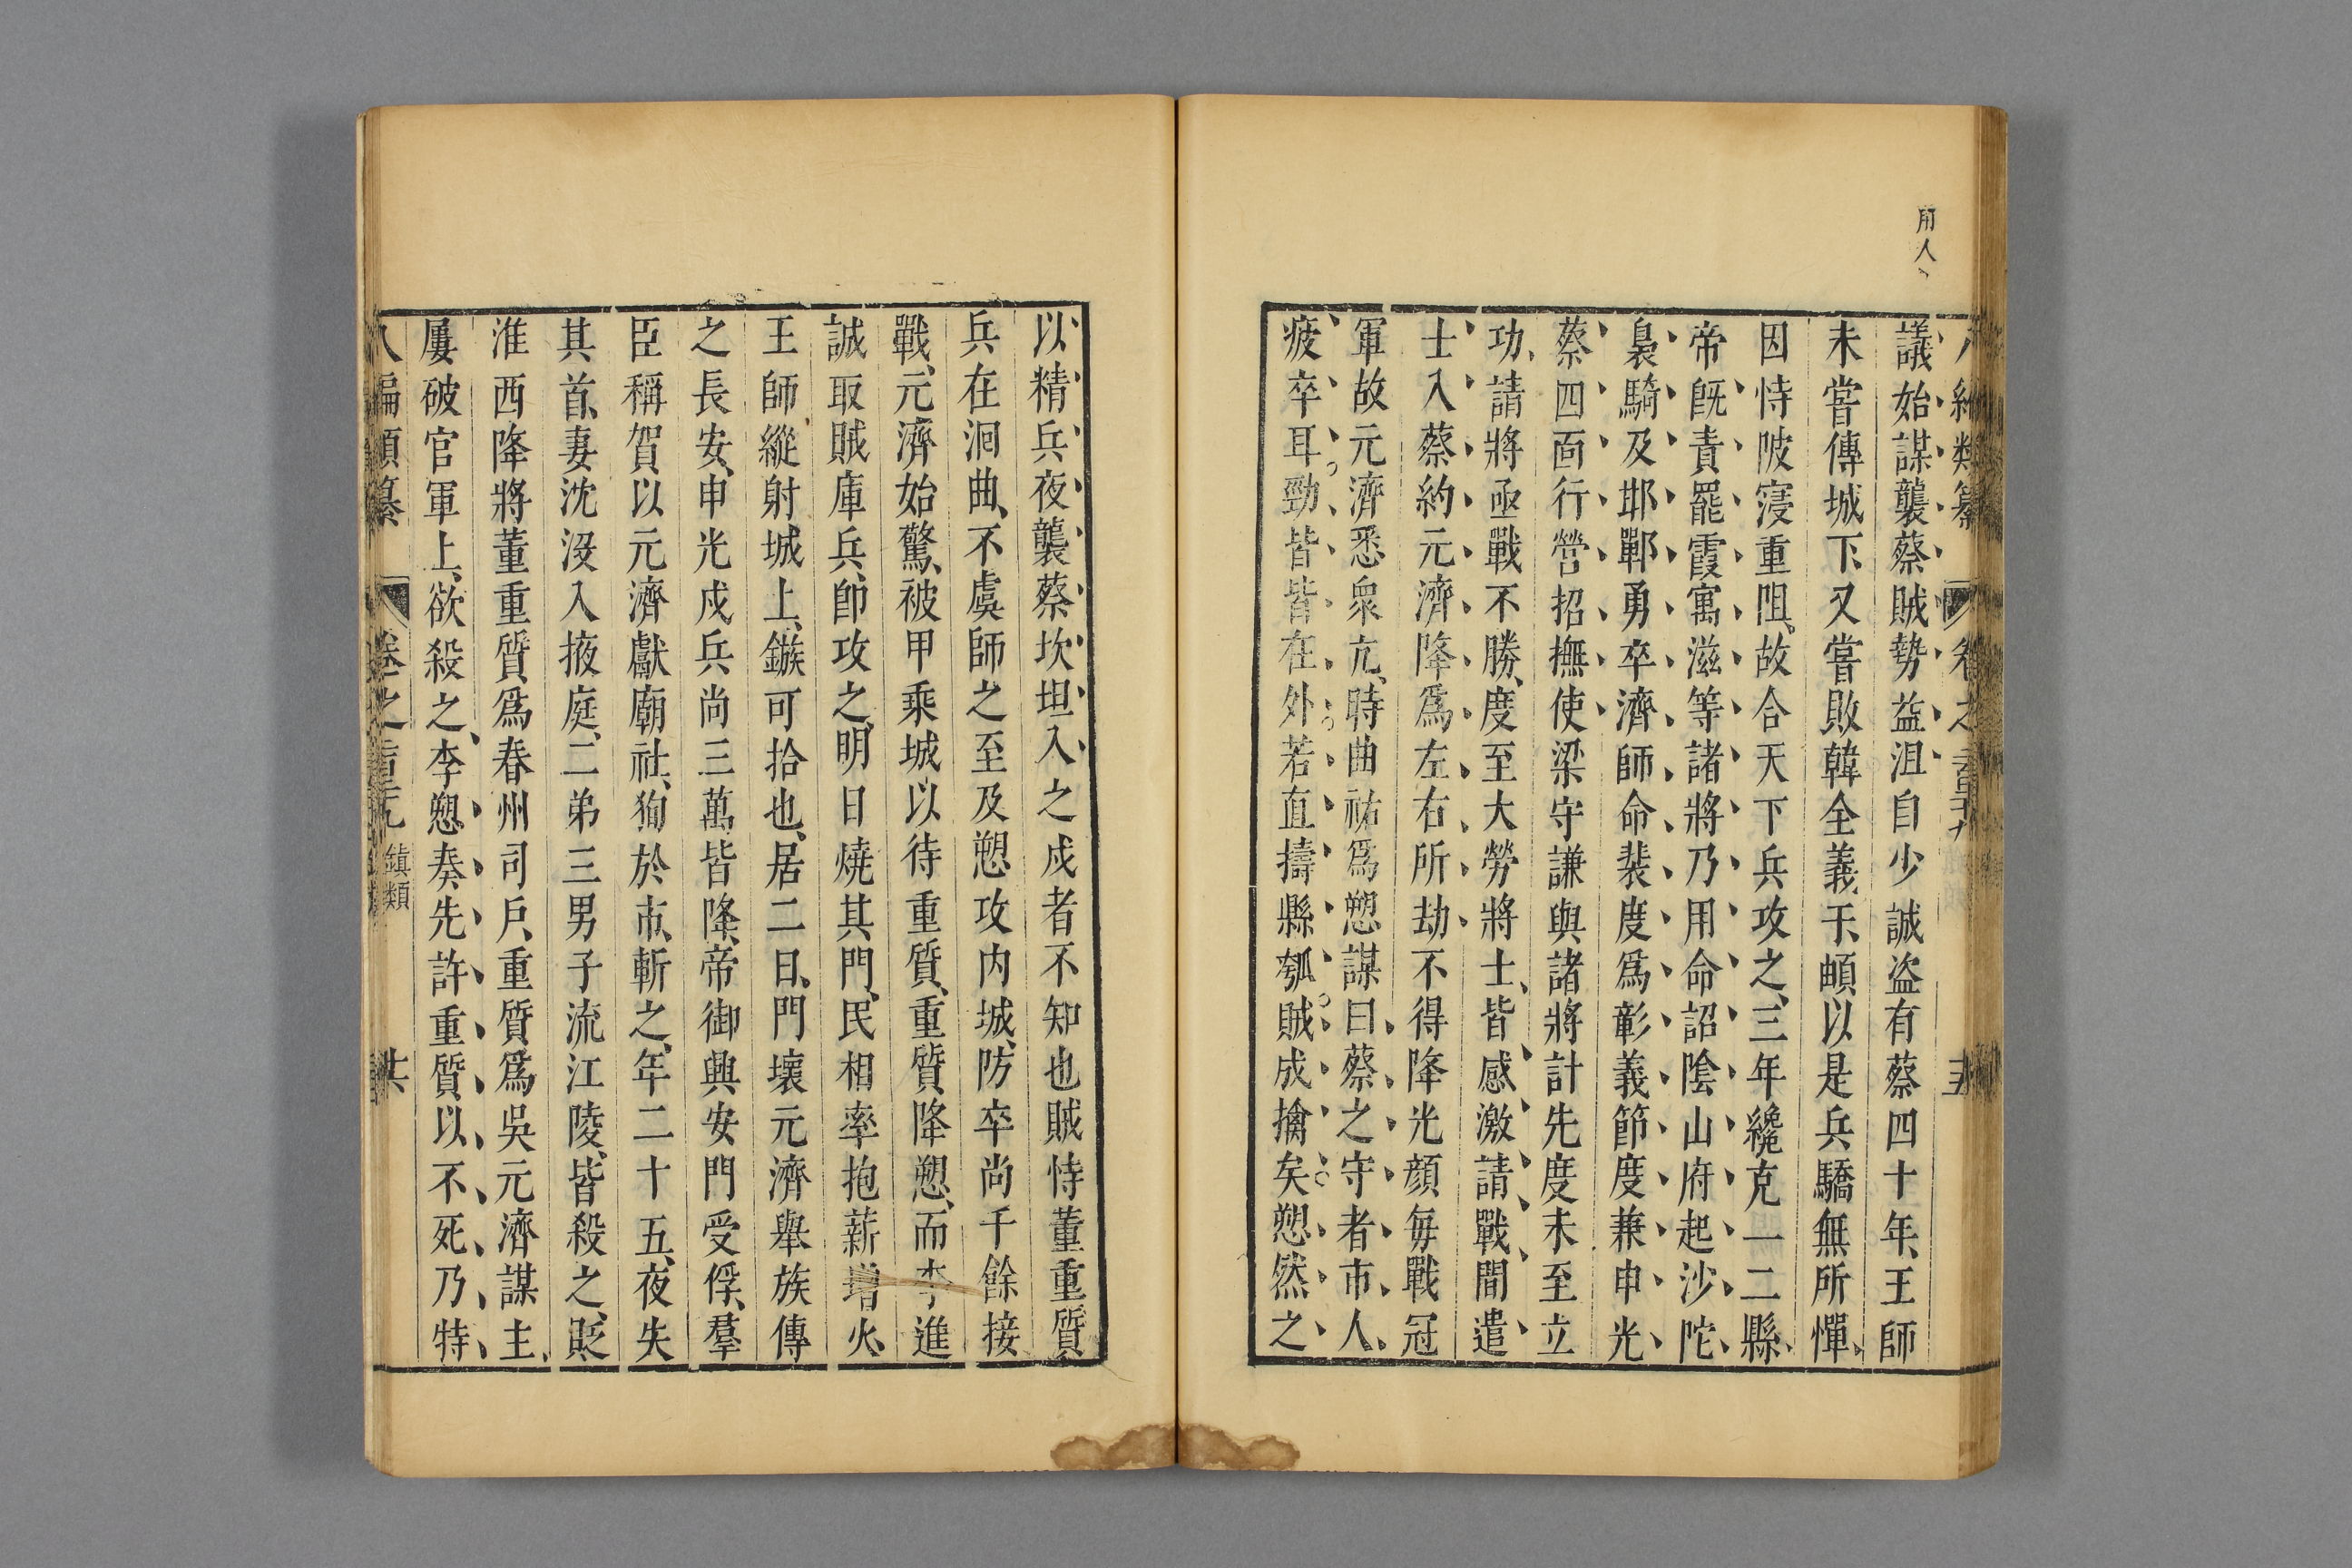 用人
議始謀襲蔡賊勢益沮自少誠盗有蔡四十年王師
未嘗傅城下又嘗敗韓全義于頔以是兵驕無所憚
因恃陂寖重阻故合天下兵攻之三年纔克一二縣
帝旣責罷霞寓滋等諸將乃用命詔隂山府起沙陀
裊騎及邯鄲勇卒濟師命裴度爲彰義節度兼申光
蔡四面行營招撫使梁守謙與諸將計先度未至立
功請將亟戰不勝度至大勞將士皆感激請戰間遣
士入蔡約元濟降爲左右所劫不得降光顔每戰冠
軍故元濟悉衆亢時曲祐爲愬謀曰蔡之守者市人
疲卒耳勁皆皆在外若直擣縣瓠賊成擒矣愬然之
以精兵夜襲蔡坎坦入之戍者不知也賊恃董重質
兵在洄曲不虞師之至及愬攻内城防卒尚千餘接
戰元濟始驚被甲乘城以待重質重質降愬而李進
誠取賊庫兵卽攻之明日燒其門民相率抱薪增火
王師縱射城上鏃可拾也居二日門壞元濟舉族傳
之長安申光戍兵尚三萬皆降帝御興安門受俘羣
臣稱賀以元濟獻廟社狥於市斬之年二十五夜失
其首妻沈没入掖庭二弟三男子流江陵皆殺之貶
淮西降將董重質爲春州司戶重質爲吳元濟謀主
屢破官軍上欲殺之李愬奏先許重質以不死乃特
八編類纂 卷之 鎮類